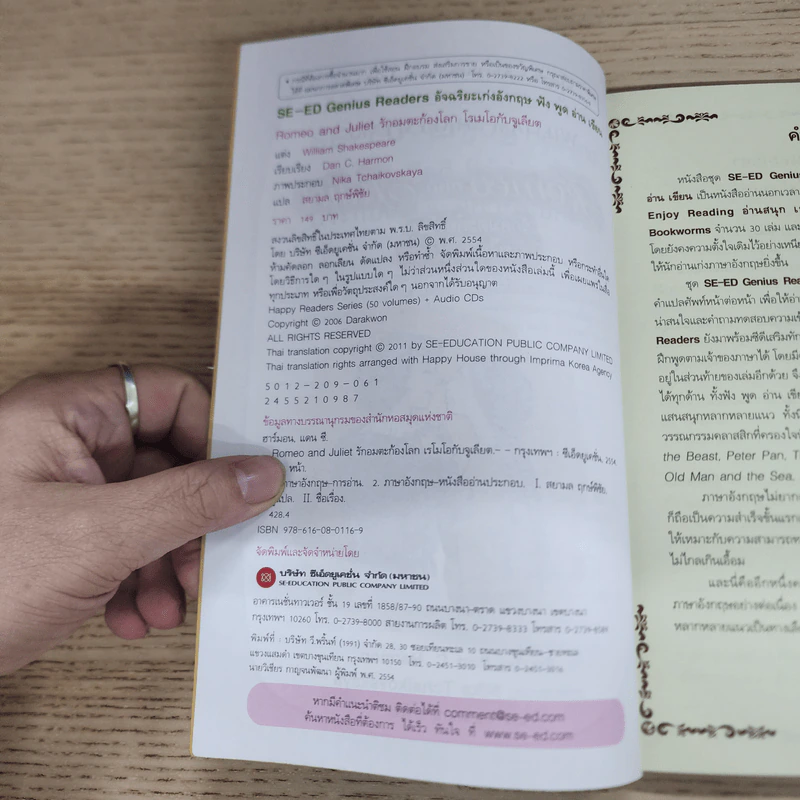 SE-ED Genius Readers อัจฉริยะเก่งอังกฤษ ฟัง พูด อ่าน เขียน
Romeo and Juliet รักอมตะก้องโลก โรเมโอกับจูเลียต
แต่ง William Shakespeare
เรียบเรียง Dan C. Harmon
ภาพประกอบ Nika Tchaikovskaya
แปล สยามล ฤกษ์พิชัย
ราคา 149 บาท
สงวนลิขสิทธิ์ในประเทศไทยตาม พ.ร.บ. ลิขสิทธิ์
โดย บริษัท ซีเอ็ดยูเคชั่น จำกัด (มหาชน) © พ.ศ. 2554
ห้ามคัดลอก ลอกเลียน ดัดแปลง หรือทำซ้ำ จัดพิมพ์เนื้อหาและภาพประกอบ หรือกระทำอื่นใด
โดยวิธีการใดๆ ในรูปแบบใดๆ ไม่ว่าส่วนหนึ่งส่วนใดของหนังสือเล่มนี้ เพื่อเผยแพร่ในสื่อ
ทุกประเภท หรือเพื่อวัตถุประสงค์ใดๆ นอกจากได้รับอนุญาต
Happy Readers Series (50 volumes) + Audio CDs
Copyright © 2006 Darakwon
ALL RIGHTS RESERVED
Thai translation copyright © 2011 by SE-EDUCATION PUBLIC COMPANY LIMITED
Thai translation rights arranged with Happy House through Imprima Korea Agency
5012-209-061
2455210987
ข้อมูลทางบรรณานุกรมของสำนักหอสมุดแห่งชาติ
ฮาร์มอน, แดน ซี.
Romeo and Juliet รักอมตะก้องโลก เรโมโอกับจูเลียต.-- กรุงเทพฯ : ซีเอ็ดยูเคชั่น, 2554
หน้า.
ภาษาอังกฤษ-การอ่าน. 2. ภาษาอังกฤษ-หนังสืออ่านประกอบ. I. สยามล ฤกษ์พิชัย,
แปล. II. ชื่อเรื่อง.
428.4
ISBN 978-616-08-0116-9
จัดพิมพ์และจัดจำหน่ายโดย
บริษัท ซีเอ็ดยูเคชั่น จำกัด (มหาชน)
SE-EDUCATION PUBLIC COMPANY LIMITED
อาคารเนชั่นทาวเวอร์ ชั้น 19 เลขที่ 1858/87-90 ถนนบางนา-ตราด แขวงบางนา เขตบางนา
กรุงเทพฯ 10260 โทร. 0-2739-8000 สายงานการผลิต โทร. 0-2739-8333 โทรสาร
พิมพ์ที่ : บริษัท วี.พริ้นท์ (1991) จำกัด 28, 30 ซอยเทียนทะเล 10 ถนนบางขุนเทียน-ชายทะเล
แขวงแสมดำ เขตบางขุนเทียน กรุงเทพฯ 10150 โทร. 0-2451-3010 โทรสาร 0-2451-3016
นายวิเชียร กาญจนพัฒนา ผู้พิมพ์ พ.ศ. 2554
หากมีคำแนะนำติชม ติดต่อได้ที่ comment@se-ed.com
ค้นหาหนังสือที่ต้องการ ได้เร็ว ทันใจ ที่ www.se-ed.com
หนังสือชุด SE-ED Genius
อ่าน เขียน เป็นหนังสืออ่านนอกเวลา
Enjoy Reading อ่านสนุก
Bookworms จำนวน 30 เล่ม และ
โดยยังคงความตั้งใจเดิมไว้อย่างเหนีย
ให้นักอ่านเก่งภาษาอังกฤษยิ่งขึ้น
ชุด SE-ED Genius Rea
คำแปลศัพท์หน้าต่อหน้า เพื่อให้อ่าน
น่าสนใจและคำถามทดสอบความเข้
Readers ยังมาพร้อมซีดีเสริมทัก
ฝึกพูดตามเจ้าของภาษาได้ โดยมี
อยู่ในส่วนท้ายของเล่มอีกด้วย จึง
ได้ทุกด้าน ทั้งฟัง พูด อ่าน เขีย
แสนสนุกหลากหลายแนว ทั้งนิ
วรรณกรรมคลาสสิกที่ครองใจ
the Beast, Peter Pan, T
Old Man and the Sea.
ภาษาอังกฤษไม่ยาก
ก็ถือเป็นความสำเร็จขั้นแรก
ให้เหมาะกับความสามารถท
ไม่ไกลเกินเอื้อม
และนี่คืออีกหนึ่ง
ภาษาอังกฤษอย่างต่อเนื่อง
หลากหลายแนวเป็นทางเลือ